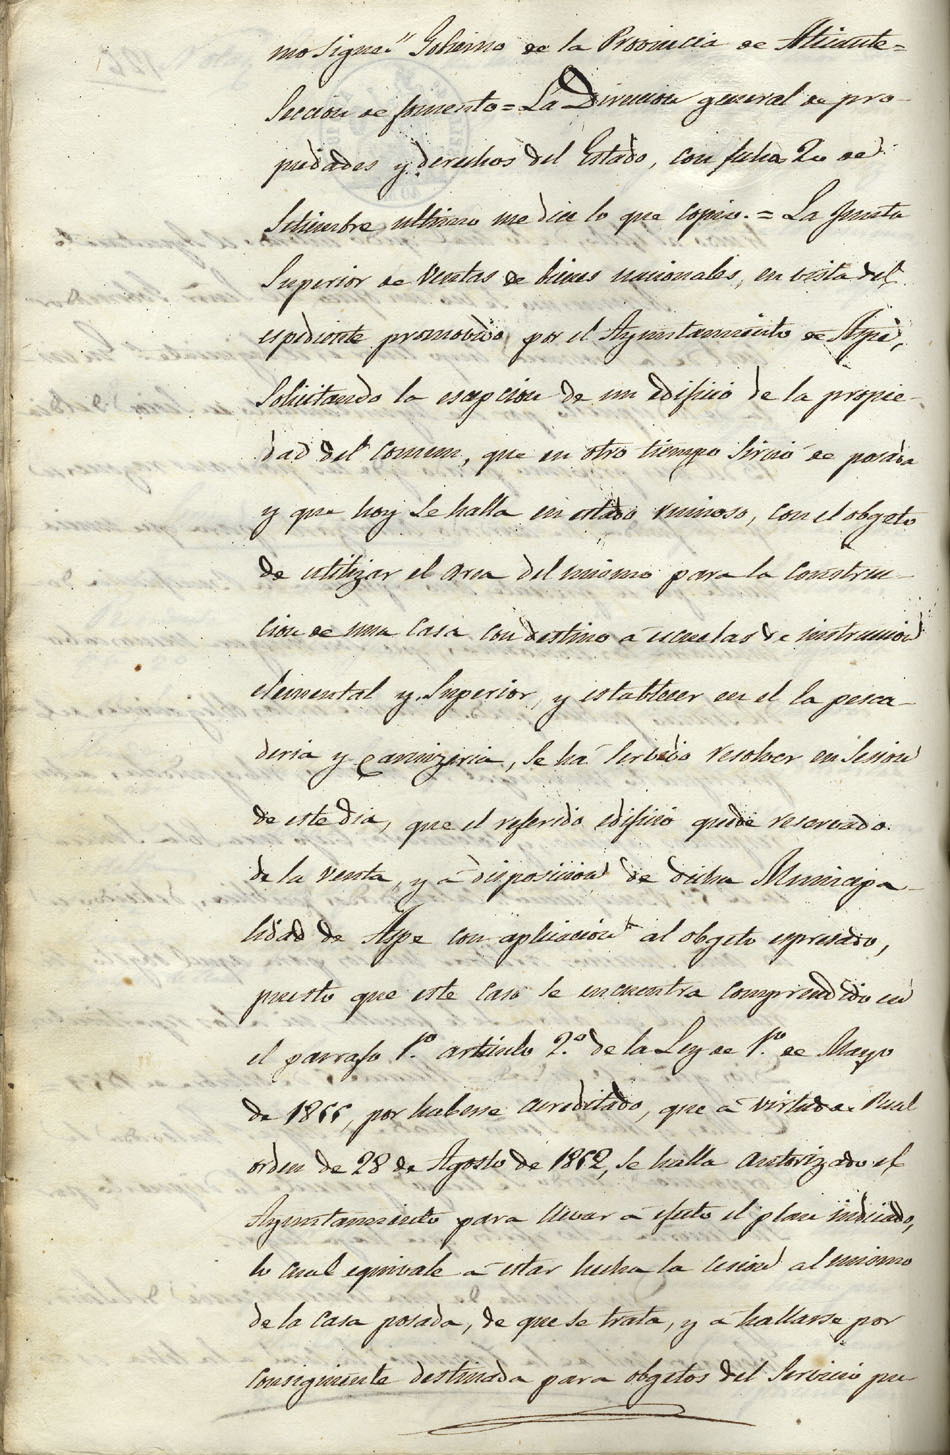 mo sigue." Gobierno de la Provincia de Alicante=
Seccion de fomento= La Direccion general de pro-
piedades y derechos del Estado, con fecha 20 de
Setiembre ultimo me dice lo que copio.= La Junta
Superior de ventas de bienes nacionales, en vista del
espediente promovido por el Ayuntamiento de Aspe,
Solicitando la escepcion de un edificio de la propie-
dad del comun, que en otro tiempo sirvió de posada
y que hoy se halla en estado ruinoso, con el obgeto
de utilizar el area del mismo para la construc-
cion de una casa con destino á escuelas de instruccion
elemental y Superior, y establecer en el la pesca-
deria y carnizeria, se ha servido resolver en sesion
de este dia, que el referido edificio quede reservado
de la venta, y á disposicion de dicha Municipa-
lidad de Aspe con aplicacion al obgeto espresado,
puesto que este caso se encuentra comprendido en
el parrafo 1.º artículo 2.º de la Ley de 1.º de Mayo
de 1855, por haberse acreditado, que á virtud de Real
orden de 28 de Agosto de 1852, se halla autorizado el
Ayuntamiento para llevar á efecto el plan indicado,
lo cual equivale á estar hecha la cesion al mismo
de la casa posada, de que se trata, y á hallarse por
consiguiente destinada para obgetos del Servicio pu-